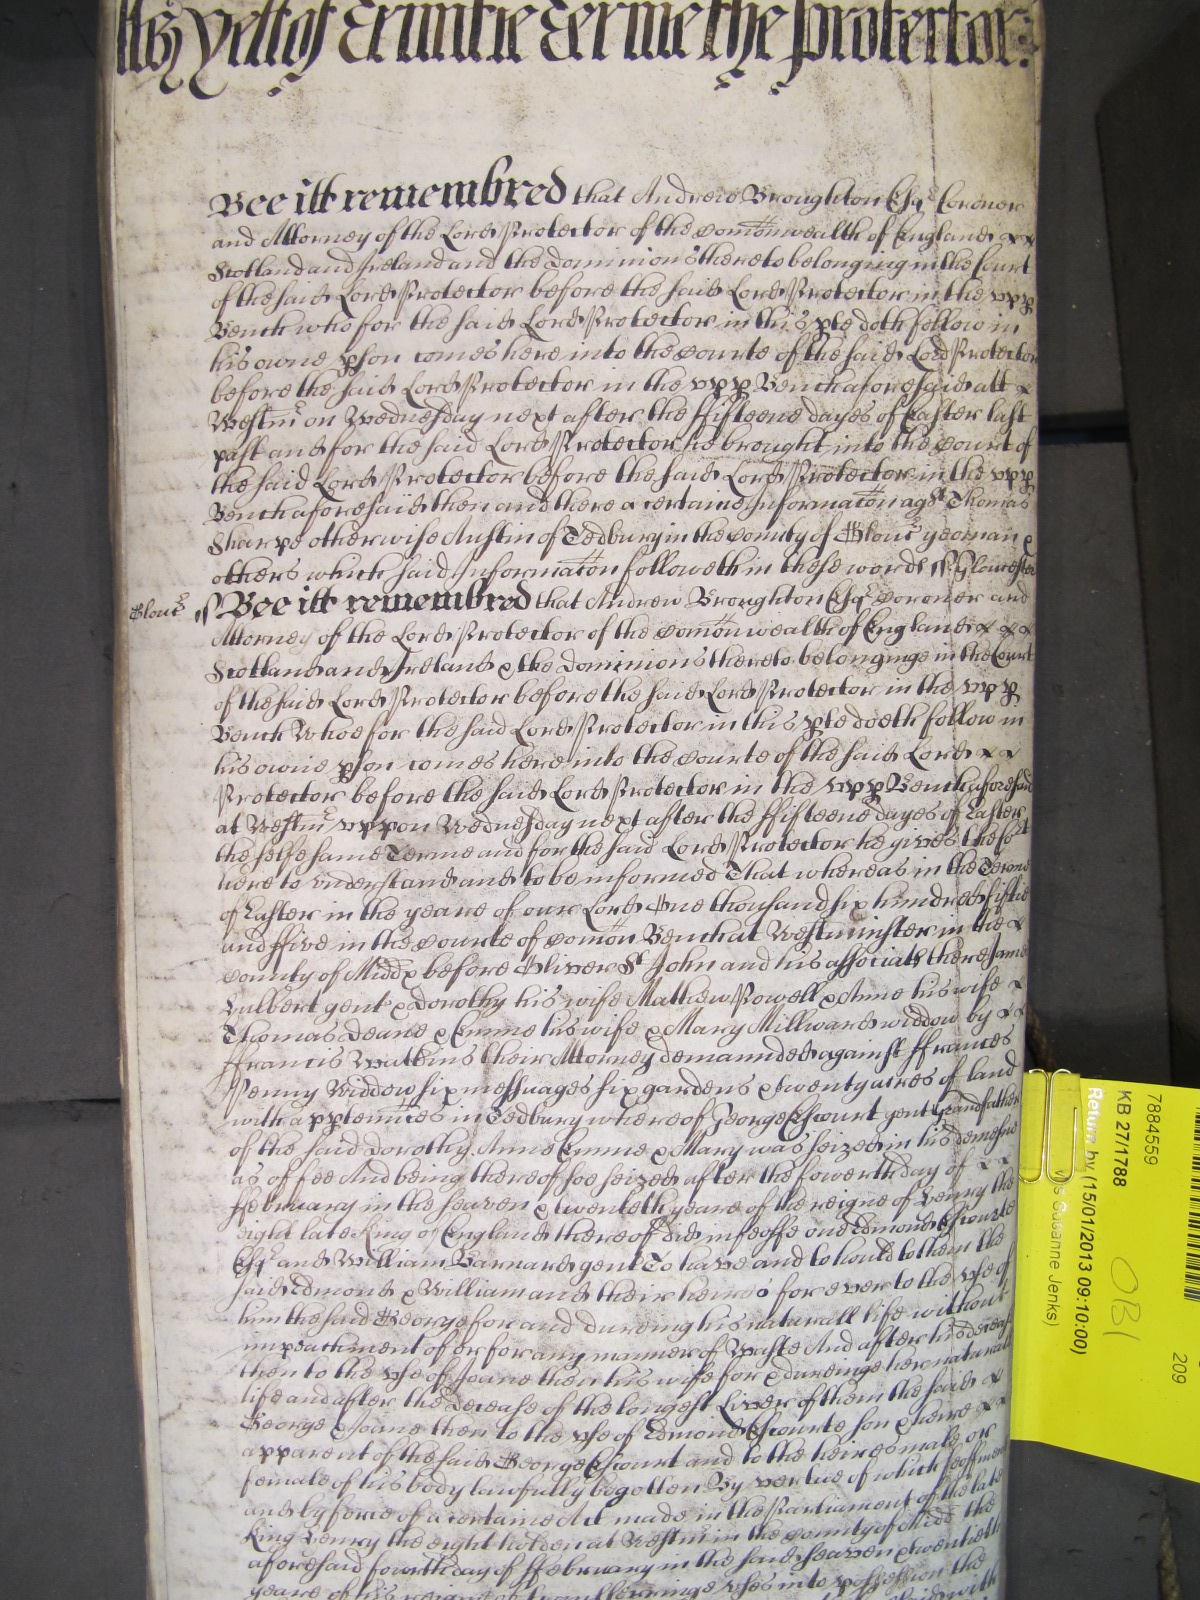 yett of Trinitie Terme the Protector:
Bee itt remembred that Andrew Broughton Esqr Coroner
and Attorney of the Lord Protector of the Comonwealth of England
Scotland and Ireland and the Dominions thereto belonging in the Court
of the said Lord Protector before the said Lord Protector in the upp
Bench who for the said Lord Protector in this pte doth follow in
his owne pson comes here into the Courte of the said Lord Protector
before the said Lord Protector in the upp Bench aforesaid att
Westmr on Wednesday next after the ffifteene dayes of Easter last
past and for the said Lord Protector he brought into the Court of
the said Lord Protector before the said Lord Protector in the upp
Bench aforesaid then and there a certaine Informacon agst Thomas
Sharpe otherwise Austin of Tedbury in the County of Gloucr yeoman &
others which said Informacon followeth in these words ss Gloucester
Gloucr ss Bee itt remembred that Andrew Broughton Esqr Coroner and
Attorney of the Lord Protector of the Comonwealth of England
Scotland and Ireland & the Dominions thereto belonginge in the Court
of the said Lord Protector before the said Lord Protector in the upp
Bench Whoe for the said Lord Protector in this pte doeth follow in
his owne pson comes here into the Courte of the said Lord
Protector before the said Lord Protector in the upp Bench aforesaid
at Westmr uppon Wednesday next after the ffifteene dayes of Easter
the selfe same Terme and for the said Lord Protector he gives the Cort
here to understand and to be informed That whereas in the Terme
of Easter in the yeare of our Lord One thousand six hundred fiftie
and ffive in the Courte of Comon Bench at Westminster in the
County of Middx before Oliver St John and his associats there James
Culbert gent & Dorothy his wife Mathew Powell & Anne his wife
Thomas Deane & Emme his wife & Mary Millward widdow by
ffrancis Watkins their Attorney demanded against ffrances
Penny Widdow six messuages six gardens & twenty acres of land
with apptennces in Tedbury whereof George Escourt gent Grandfather
of the said Dorothy Anne Emme & Mary was seized in his demesne
as of fee And being thereof soe seized after the fowerth day of
ffebruary in the seaven & twentieth yeare of the reigne of Henry the
eight late King of England thereof did infeoffe one Edmond Escourte
Esqr and William Barnard gent To have and to hould to them the
said Edmond & William and their heires for ever to the use of
him the said George for and dureing his naturall life without
impeachment of or for any manner of Waste And after his decease
then to the use of Joane then his wife for & dureinge her naturall
life and after the decease of the longest Liver of them the said
George & Joane then to the use of Edmond Escourte son & heire
apparent of the said George Escourt and to the heires male or
female of his body lawfully begotten By vertue of which feoffment
and by force of a certaine Act made in the Parliament of the late
King Henry the eight holden at Westmr in the County of Midd the
aforesaid fourth day of ffebruary in the said seaven & twentieth
yeare of his reigne of transferringe uses into possession the
7884559
KB 27/1788
Return by (15/01/2013 09:10:00)
Susanne Jenks)
OBI
209